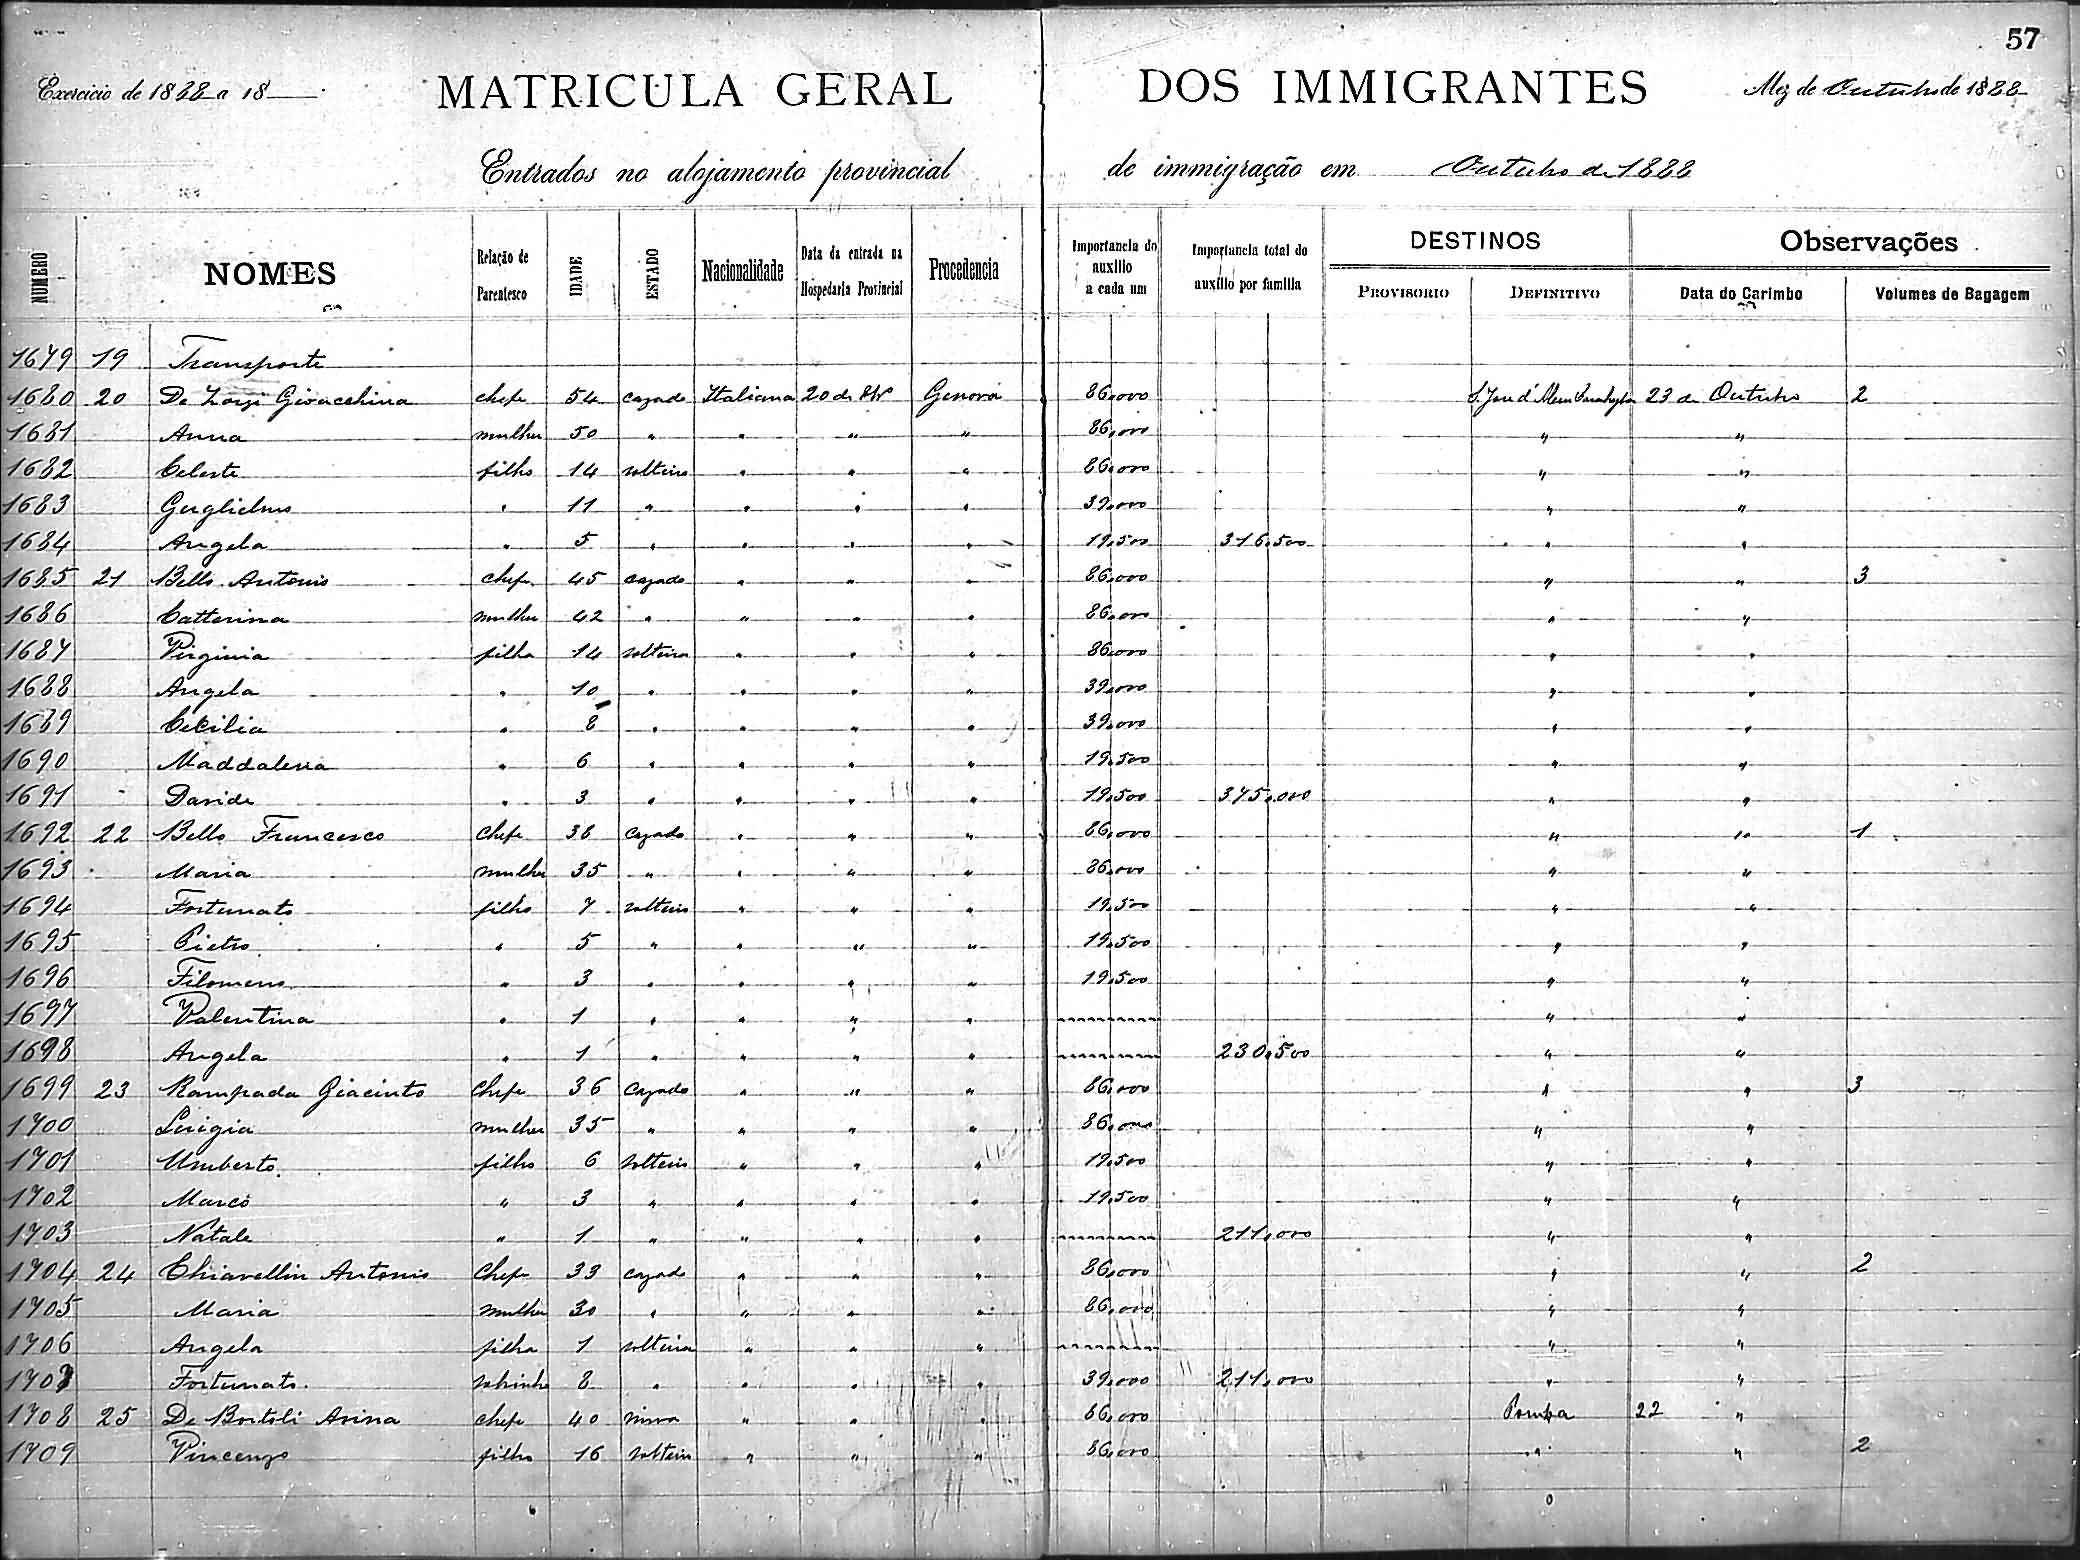 57
Exercicio de 1888 a 18
MATRICULA GERAL DOS IMMIGRANTES
Mez de Outubro de 1888
Entrados no alojamento provincial de immigração em Outubro de 1888
NUMERO NOMES Relação de Parentesco IDADE ESTADO Nacionalidade Data da entrada na Hospedaria Provincial Procedencia Importancia do auxilio a cada um Importancia total do auxilio por familia DESTINOS PROVISORIO DEFINITIVO Observações Data do Carimbo Volumes de Bagagem
1679 19 Transporte
1680 20 De Zorzi Gioacchina chefe 54 cazado Italiana 20 de Genova 86,000 S. José d'Alem Parahyba 23 de Outubro 2
1681 Anna mulher 50 " " " " 86,000 " "
1682 Celeste filho 14 solteiro " " " 86,000 " "
1683 Guglielmo " 11 " " " " 39,000 " "
1684 Angela " 5 " " " " 19,500 316,500 " "
1685 21 Bello Antonio chefe 45 cazado " " " 86,000 " " 3
1686 Catterina mulher 42 " " " " 86,000 " "
1687 Virginia filha 14 solteira " " " 86,000 " "
1688 Angela " 10 " " " " 39,000 " "
1689 Cecilia " 8 " " " " 39,000 " "
1690 Maddalena " 6 " " " " 19,500 " "
1691 Davide " 3 " " " " 19,500 375,000 " "
1692 22 Bello Francesco chefe 38 cazado " " " 86,000 " " 1
1693 Maria mulher 35 " " " " 86,000 " "
1694 Fortunato filho 7 solteiro " " " 19,500 " "
1695 Pietro " 5 " " " " 19,500 " "
1696 Filomeno " 3 " " " " 19,500 " "
1697 Valentina " 1 " " " " " "
1698 Angela " 1 " " " " 230,500 " "
1699 23 Rampada Giacinto chefe 36 cazado " " " 86,000 " " 3
1700 Luigia mulher 35 " " " " 86,000 " "
1701 Umberto filho 6 solteiro " " " 19,500 " "
1702 Marco " 3 " " " " 19,500 " "
1703 Natale " 1 " " " " 211,000 " "
1704 24 Chiavellin Antonio chefe 33 cazado " " " 86,000 " " 2
1705 Maria mulher 30 " " " " 86,000 " "
1706 Angela filha 1 solteira " " " " "
1707 Fortunato sobrinho 8 " " " " 39,000 211,000 " "
1708 25 De Bortoli Anna chefe 40 viuva " " " 86,000 Pomba 22 "
1709 Vincenzo filho 16 solteiro " " " 86,000 " " 2